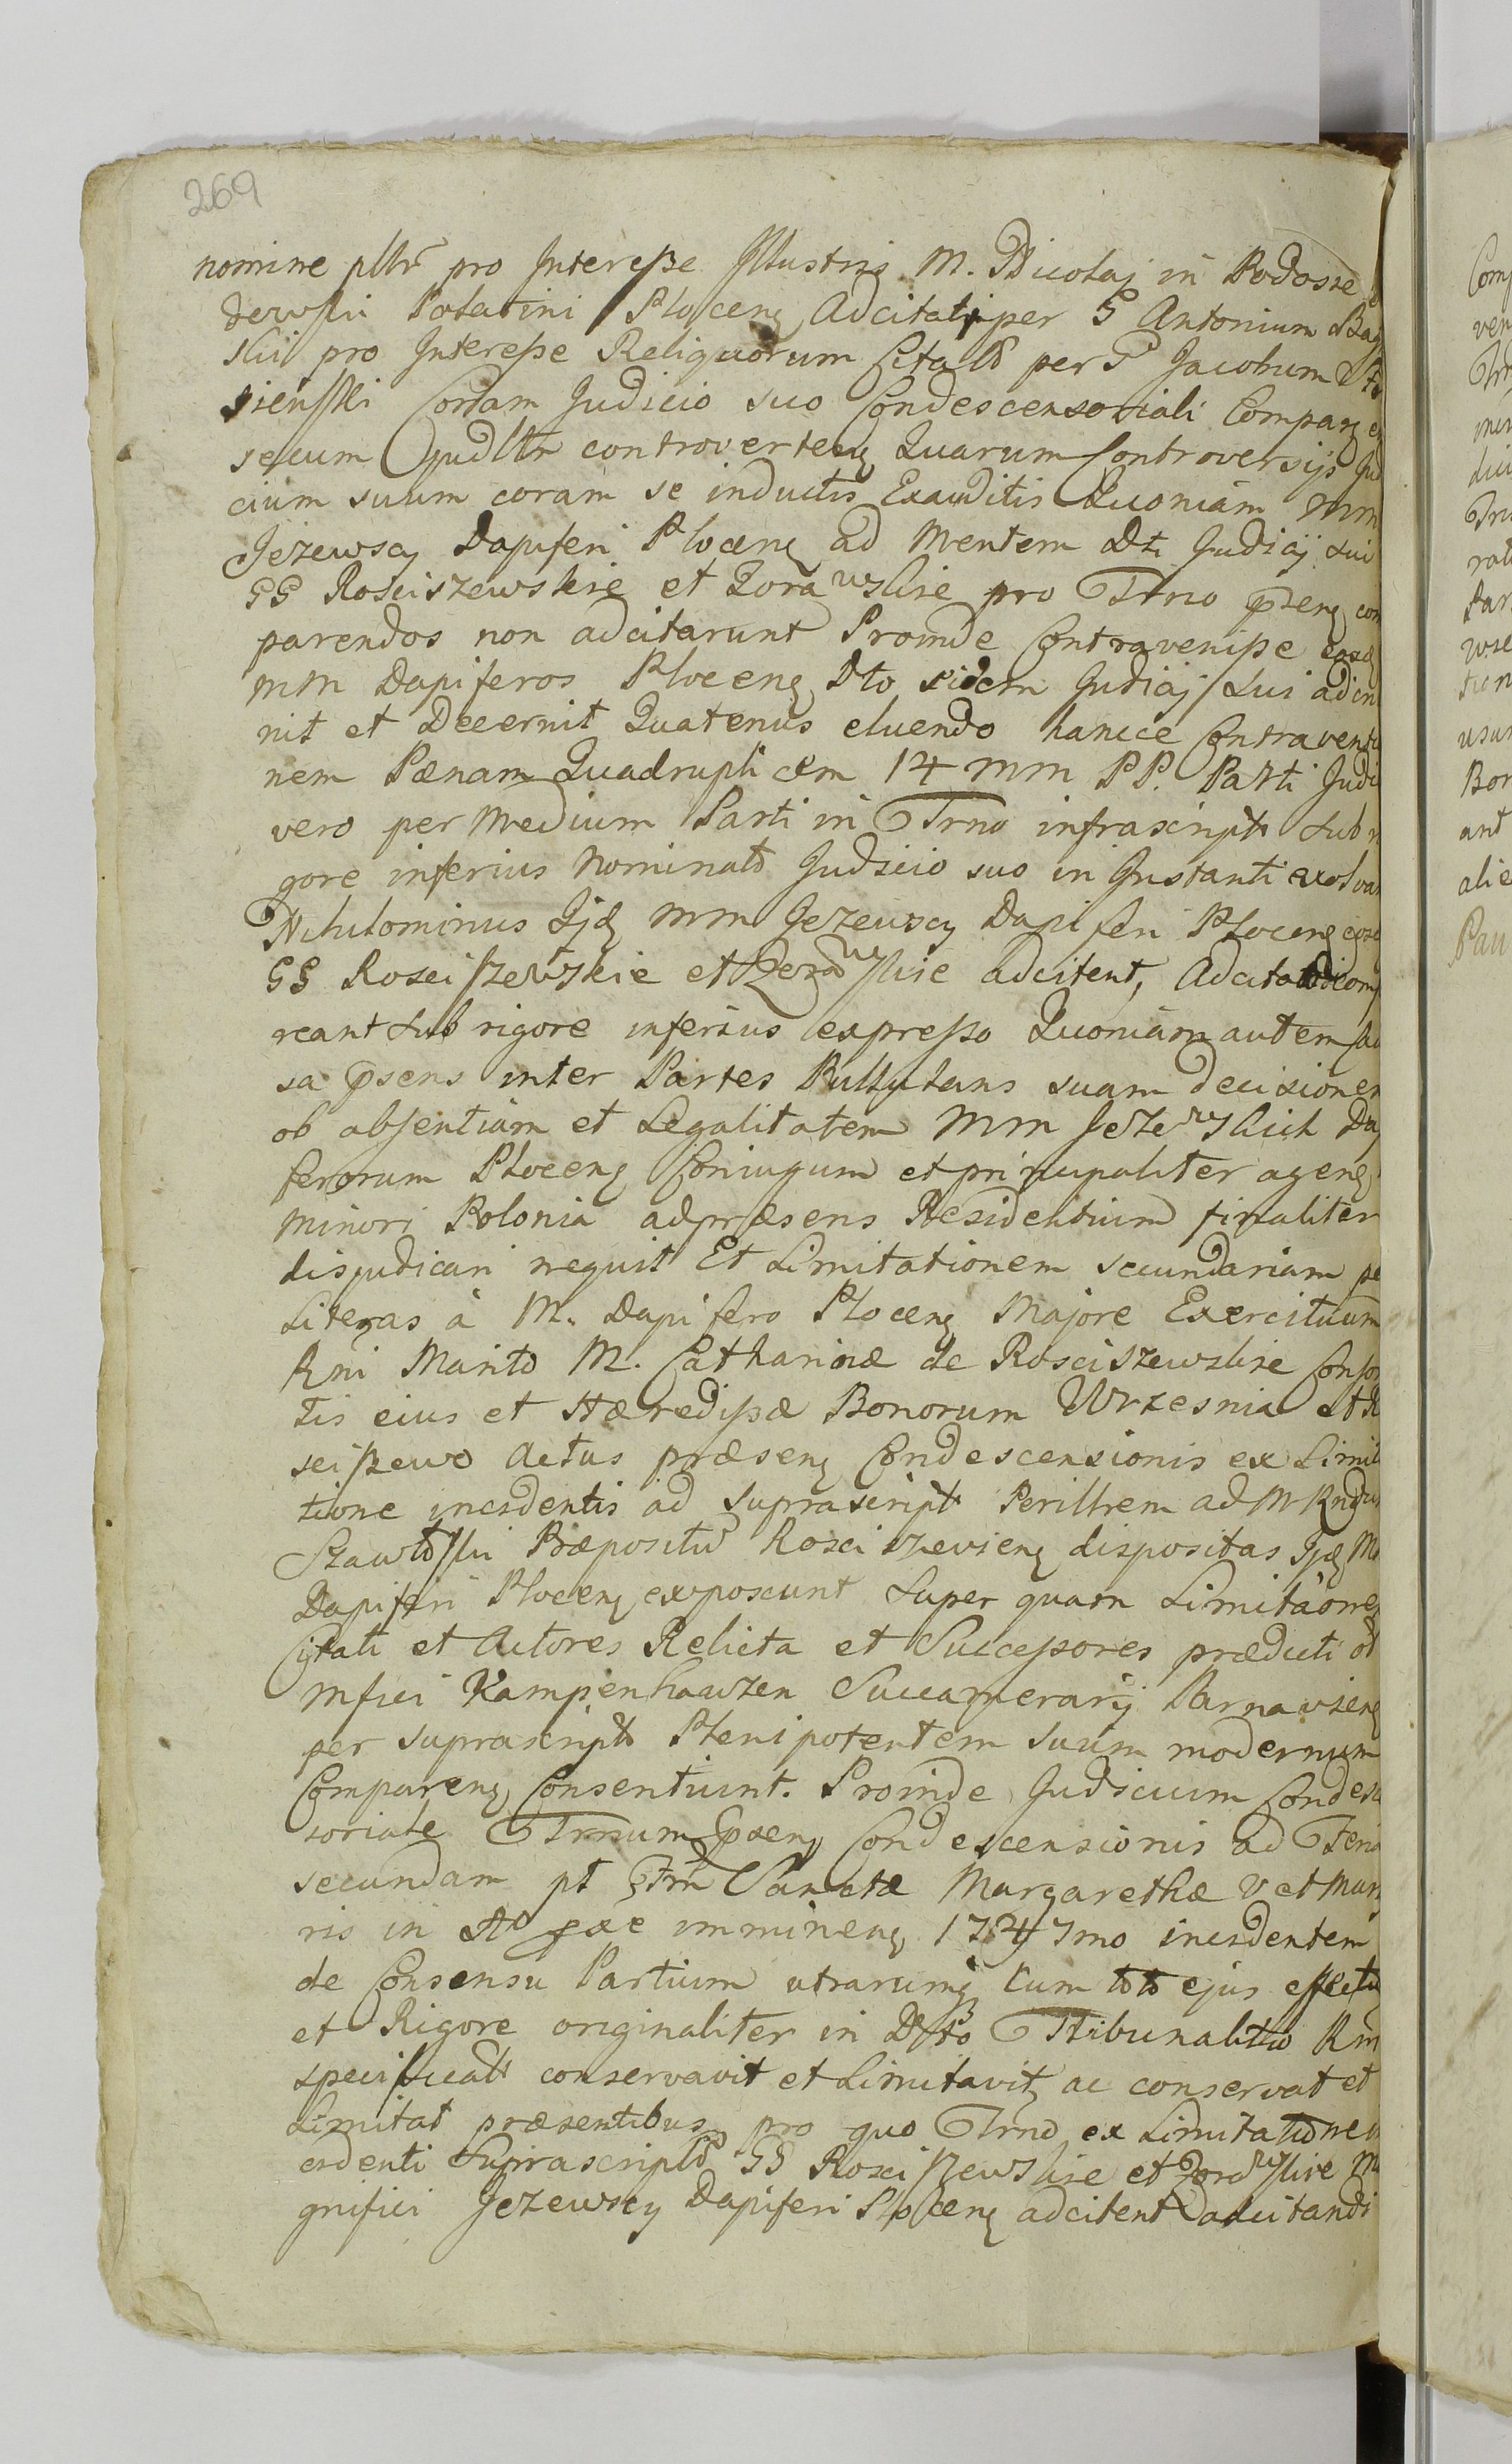 269
nomine pltr pro Interesse Illustris M. Nicolaj in Podosze
dewski Palatini Plocenς Adcitati per G Antonium Bag
ski pro Interesse Reliquorum Citato per G Jacobum
sienski Coram Judicio suo Condescensoriali Comparς
secum Gudltr controvertenς Quarum Controversijs Ju
cium suum coram se inductis Exauditis Quoniam MM
Jezewscy Dapiferi Plocenς ad Mentem Dti Judicij sui
GG Rosciszewskie et Zorawskie pro Trno psenς com
parendos non adcitarunt Proinde Contravenisse eosdς
MM Dapiferos Plocenς Dto eidem Judicij sui adin
nit et Decernit Quatenus eluendo hancce Contraventio
nem Pænam Quadruplicem 14 mm PP. Parti Judi
vero per Medium Parti in Trno infrascript sub ri
gore inferius Nominato Judicio suo in Instanti exolvat
Nihilominus Ijdς MM Jezewscy Dapiferi Plocenς eosd
GG Rosciszewskie et Zorawskie adcitent, Adcitati comp
reant sub rigore inferius expresso Quoniam autem Cau
sa psens inter Partes Pullulans suam decisionem
ob absentiam et Legalitatem MM Jezewskich Da
ferorum Plocenς Coniugum et principaliter agenς
Minori Polonia ad præsens Residentium finaliter
disjudicari nequit Et Limitationem secundariam pe
Literas à M. Dapifero Plocenς Majore Exercituum
Rni Marito M. Catharinæ de Rosciszewskie Consor
tis eius et Hæredissæ Bonorum Wrzesnia et R
sciszewo Actus præsenς Condescensionis ex Limit
tione incidentis ad suprascript Perillrem ad M Rndum
Szawłoski Præpositū Rosciszevienς dispositas Ijdς M
Dapiferi Plocenς exposcunt Super quam Limitaonem
Citati et Actores Relicta et Successores præducti ol
Mfici Kampenhawzen Succamerarij Parnavienς
per suprascript Plenipotentem suum modernum
Comparenς Consentiunt. Proinde Judicium Condesc
soriale Trnum psenς Condescensionis ad Feria
secundam pt Ftm Sanctæ Margarethæ V et Marty
ris in Ao imminenς 1747mo incidentem
de Consensu Partium utrarumq cum toto ejus effectu
et Rigore originaliter in Dto Tribunalitio Rni
specificato conservavit et Limitavit ac conservat et
Limitat præsentibus pro quo Trno ex Limitatione in
cidenti Suprascripto GG Rosciszewskie et Zorawskie M
gnifici Jezewscy Dapiferi Plocenς adcitent adcitandi